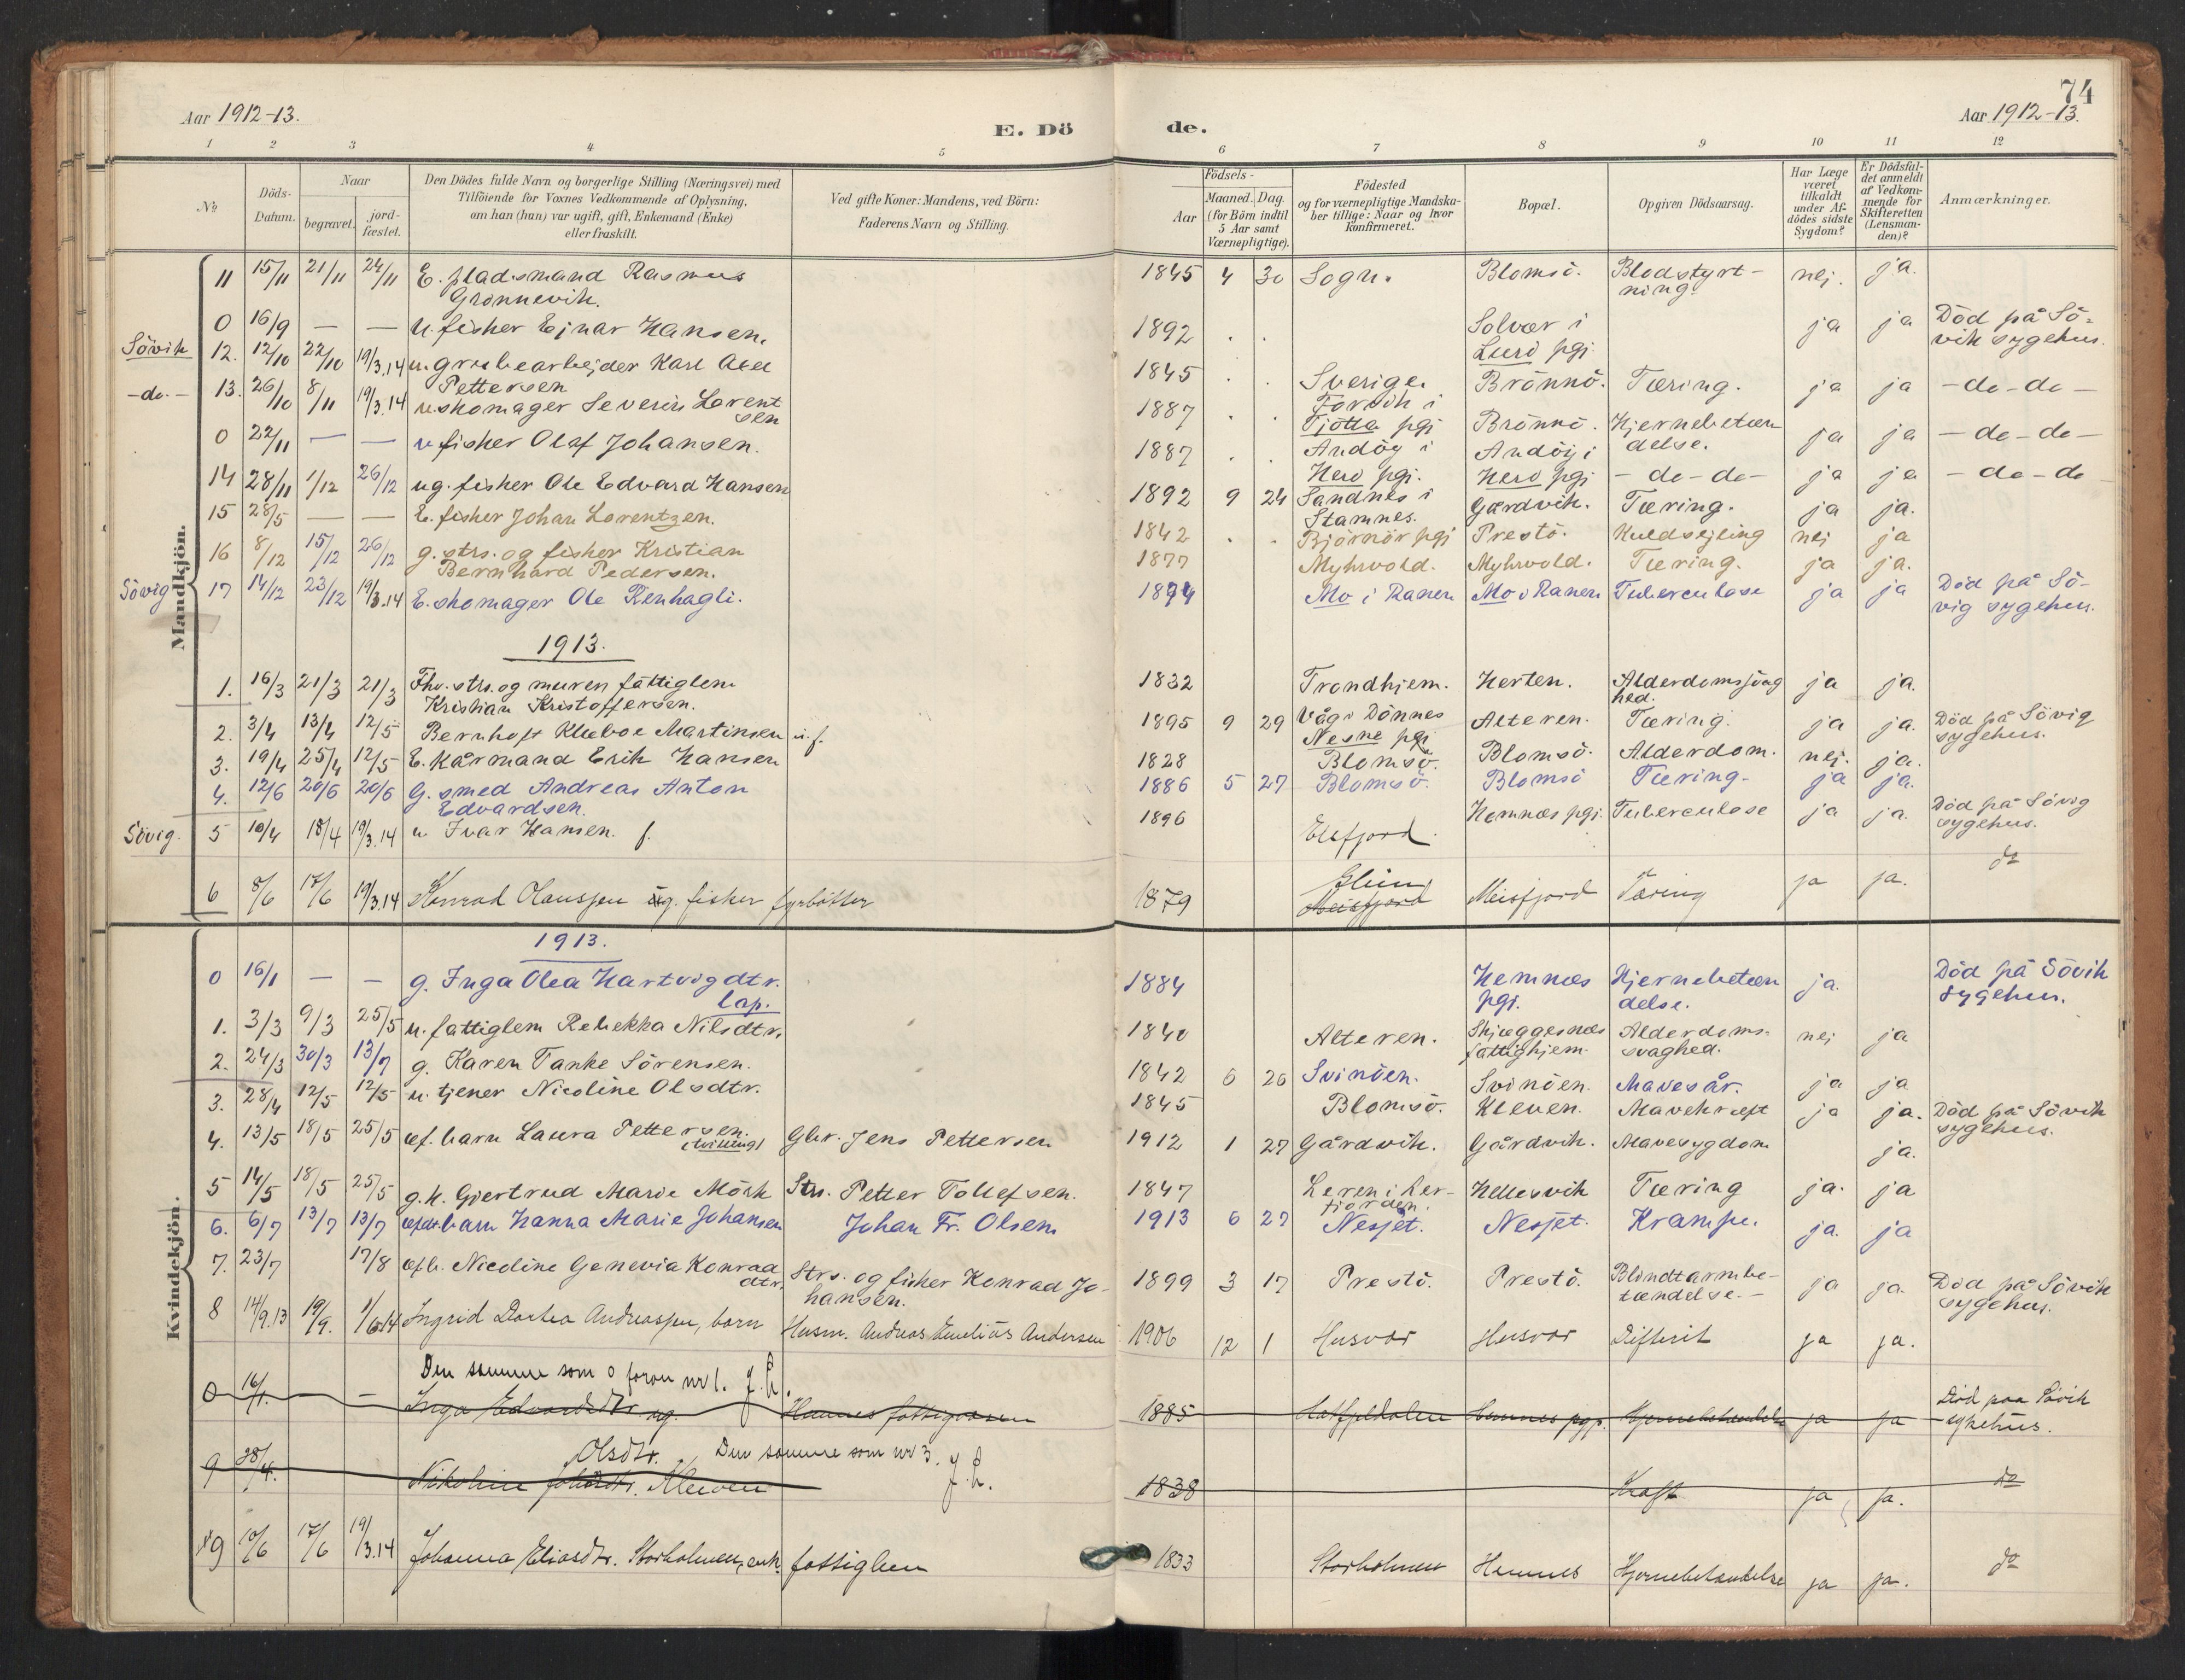 74
Aar 1912-13.
E. Dö
de.
Aar 1912-13.
1 2 3 4 5 6 7 8 9 10 11 12
No
Döds-
Datum.
Naar
begravet.
jord-
fæstet.
Den Dödes fulde Navn og borgerlige Stilling (Næringsvei) med
Tilföiende for Voxnes Vedkommende af Oplysning,
om han (hun) var ugift, gift, Enkemand (Enke)
eller fraskilt.
Ved gifte Koner: Mandens, ved Börn:
Faderens Navn og Stilling.
Födsels-
Aar
Maaned. Dag.
(for Börn indtil
5 Aar samt
Værnepligtige).
Födested
og for værnepligtige Mandska-
ber tillige: Naar og hvor
konfirmeret.
Bopæl.
Opgiven Dödsaarsag.
Har Læge
været
tilkaldt
under Af-
dödes sidste
Sygdom?
Er Dödsfal-
det anmeldt
af Vedkom-
mende for
Skifteretten
(Lensman-
den)?
Anmærkninger.
Mandkjön.
11 15/11 21/11 24/11 E. pladsmand Rasmus
Grønnevik.
1845 4 30 Sogn. Blomsö. Blodstyrt-
ning. nej. ja.
0 16/9 — — u. fisker Ejnar Hansen.
1892 . . Solvær i
Lurö pgj. ja ja Död på Sö-
vik sygehus.
Sövik 12. 12/10 22/10 19/3.14 u. grubearbejder Karl Axel
Pettersen
1845 . . Sverige. Brönnö. Tæring. ja ja -do-do-
-do.- 13. 26/10 8/11 19/3.14 u. skomager Severin Lorent
sen
1887 . . Forvik i
Tjötta pgj Brönnö. Hjernebetæn
delse. ja ja -do-do-
0 22/11 — — u. fisker Olaf Johansen.
1887 . . Andög i
Herö pgj. Andöy i
Herö pgj -do-do- ja ja -do-do
14 28/11 1/12 26/12 ug. fisker Ole Edvard Hansen
1892 9 24 Sandnes i
Stamnes. Gårdvik. Tæring. ja ja.
15 28/5 — — E. fisker Johan Lorentzen.
1842 . . Björnör pgj Prestö. Kuldsejling nej ja
16 8/12 15/12 26/12 g. strs. og fisker Kristian
Bernhard Pedersen.
1877 Myhrvold. Myhrvold. Tæring. ja ja.
Sövig 17 14/12 23/12 19/3.14 E. skomager Ole Renhagli.
1874 Mo i Ranen Mo i Ranen Tuberculose ja ja Död på Sö-
vig sygehus.
1913.
1. 16/3 21/3 21/3 Fhv. strs. og murer fattiglem
Kristian Kristoffersen.
1832 Trondhjem. Herten. Alderdomssvag
hed. ja ja.
2. 3/4 13/4 12/5 Bernhoft Kleboe Martinsen u. f.
1895 9 29 Vågi Dönnes
Nesne pgj Alteren. Tæring. ja ja. Död på Sövig
sygehus.
3. 19/4 25/4 12/5 E. kårmand Erik Hansen
1828 Blomsö. Blomsö. Alderdom. nej. ja.
4. 12/6 20/6 20/6 G. smed Andreas Anton
Edvardsen.
1886 5 27 Blomsö. Blomsö Tæring. ja ja.
Sövig. 5 10/4 18/4 19/3.14 u Ivar Hansen. f.
1896 Elsfjord. Hemnæs pgj. Tuberculose ja ja. Död på Sövig
sygehus.
6 8/6 17/6 19/3.14 Konrad Olaussen ug. fisker fyrbötter
1879 Meisfjord Meisfjord Tæring ja ja. do
Kvindekjön.
1913.
0 16/1 — — g. Inga Olea Hartvigdtr.
lap.
1884 Hemnæs
pgj. Hjernebetæn
delse. ja. Död på Sövik
sygehus.
1. 3/3 9/3 25/5 u. fattiglem Rebekka Nilsdtr.
1840 Alteren. Skjæggesnæs
fattighjem. Alderdoms-
svaghed. nej ja
2. 24/3 30/3 13/7 g. Karen Tanke Sörensen.
1842 6 26 Svinöen. Svinöen. Mavesår. ja ja
3. 28/4 12/5 12/5 u. tjener Nicoline Olsdtr.
1845 Blomsö. Kleven. Mavekræft ja ja. Död på Sövik
sygehus.
4. 13/5 18/5 25/5 æf. barn Laura Pettersen.
(tvilling) Gbr. Jens Pettersen
1912 1 27 Gårdvik. Gårdvik. Mavesygdom ja.
5 14/5 18/5 25/5 g. k. Gjertrud Marie Mörk Strs. Petter Tollefsen.
1847 Leren i Ler-
fjorden. Hellesvik Tæring ja. ja
6. 6/7 13/7 13/7 barn Hanna Marie Johansen Johan Fr. Olsen
1913 6 27 Nesjet. Nesjet. Krampe. ja. ja
7. 23/7 17/8 æf. b. Nicoline Genevia Konrad
dtr. Strs. og fisker Konrad Jo-
hansen.
1899 3 17 Prestö. Prestö. Blindtarmbe-
tændelse.- ja ja. Död på Sövik
sygehus.
8 14/9.13 19/9. 1/6.14 Ingrid Dortea Andreassen, barn Husm. Andreas Emelius Andersen
1906 12 1 Husvær Husvær Difterit ja ja.
Den samme som 0 foran nr 1.
0 16/1. — Inga Edvardsdtr ug. Hannes fattigvæsen
1885 Hatfjeldalen Hemnes pgj. Hjernebetændelse ja ja Död paa Sövik
sykehus.
Olsdtr. Den samme som nr 3.
9 28/4. Nikoline Kleven
1838 Kræft ja ja. do
9 10/6 17/6 19/3.14 Johanna Eliasdtr. Storholmen, enk. fattiglem
1833 Storholmen Hemnes Hjernebetændelse ja ja. do